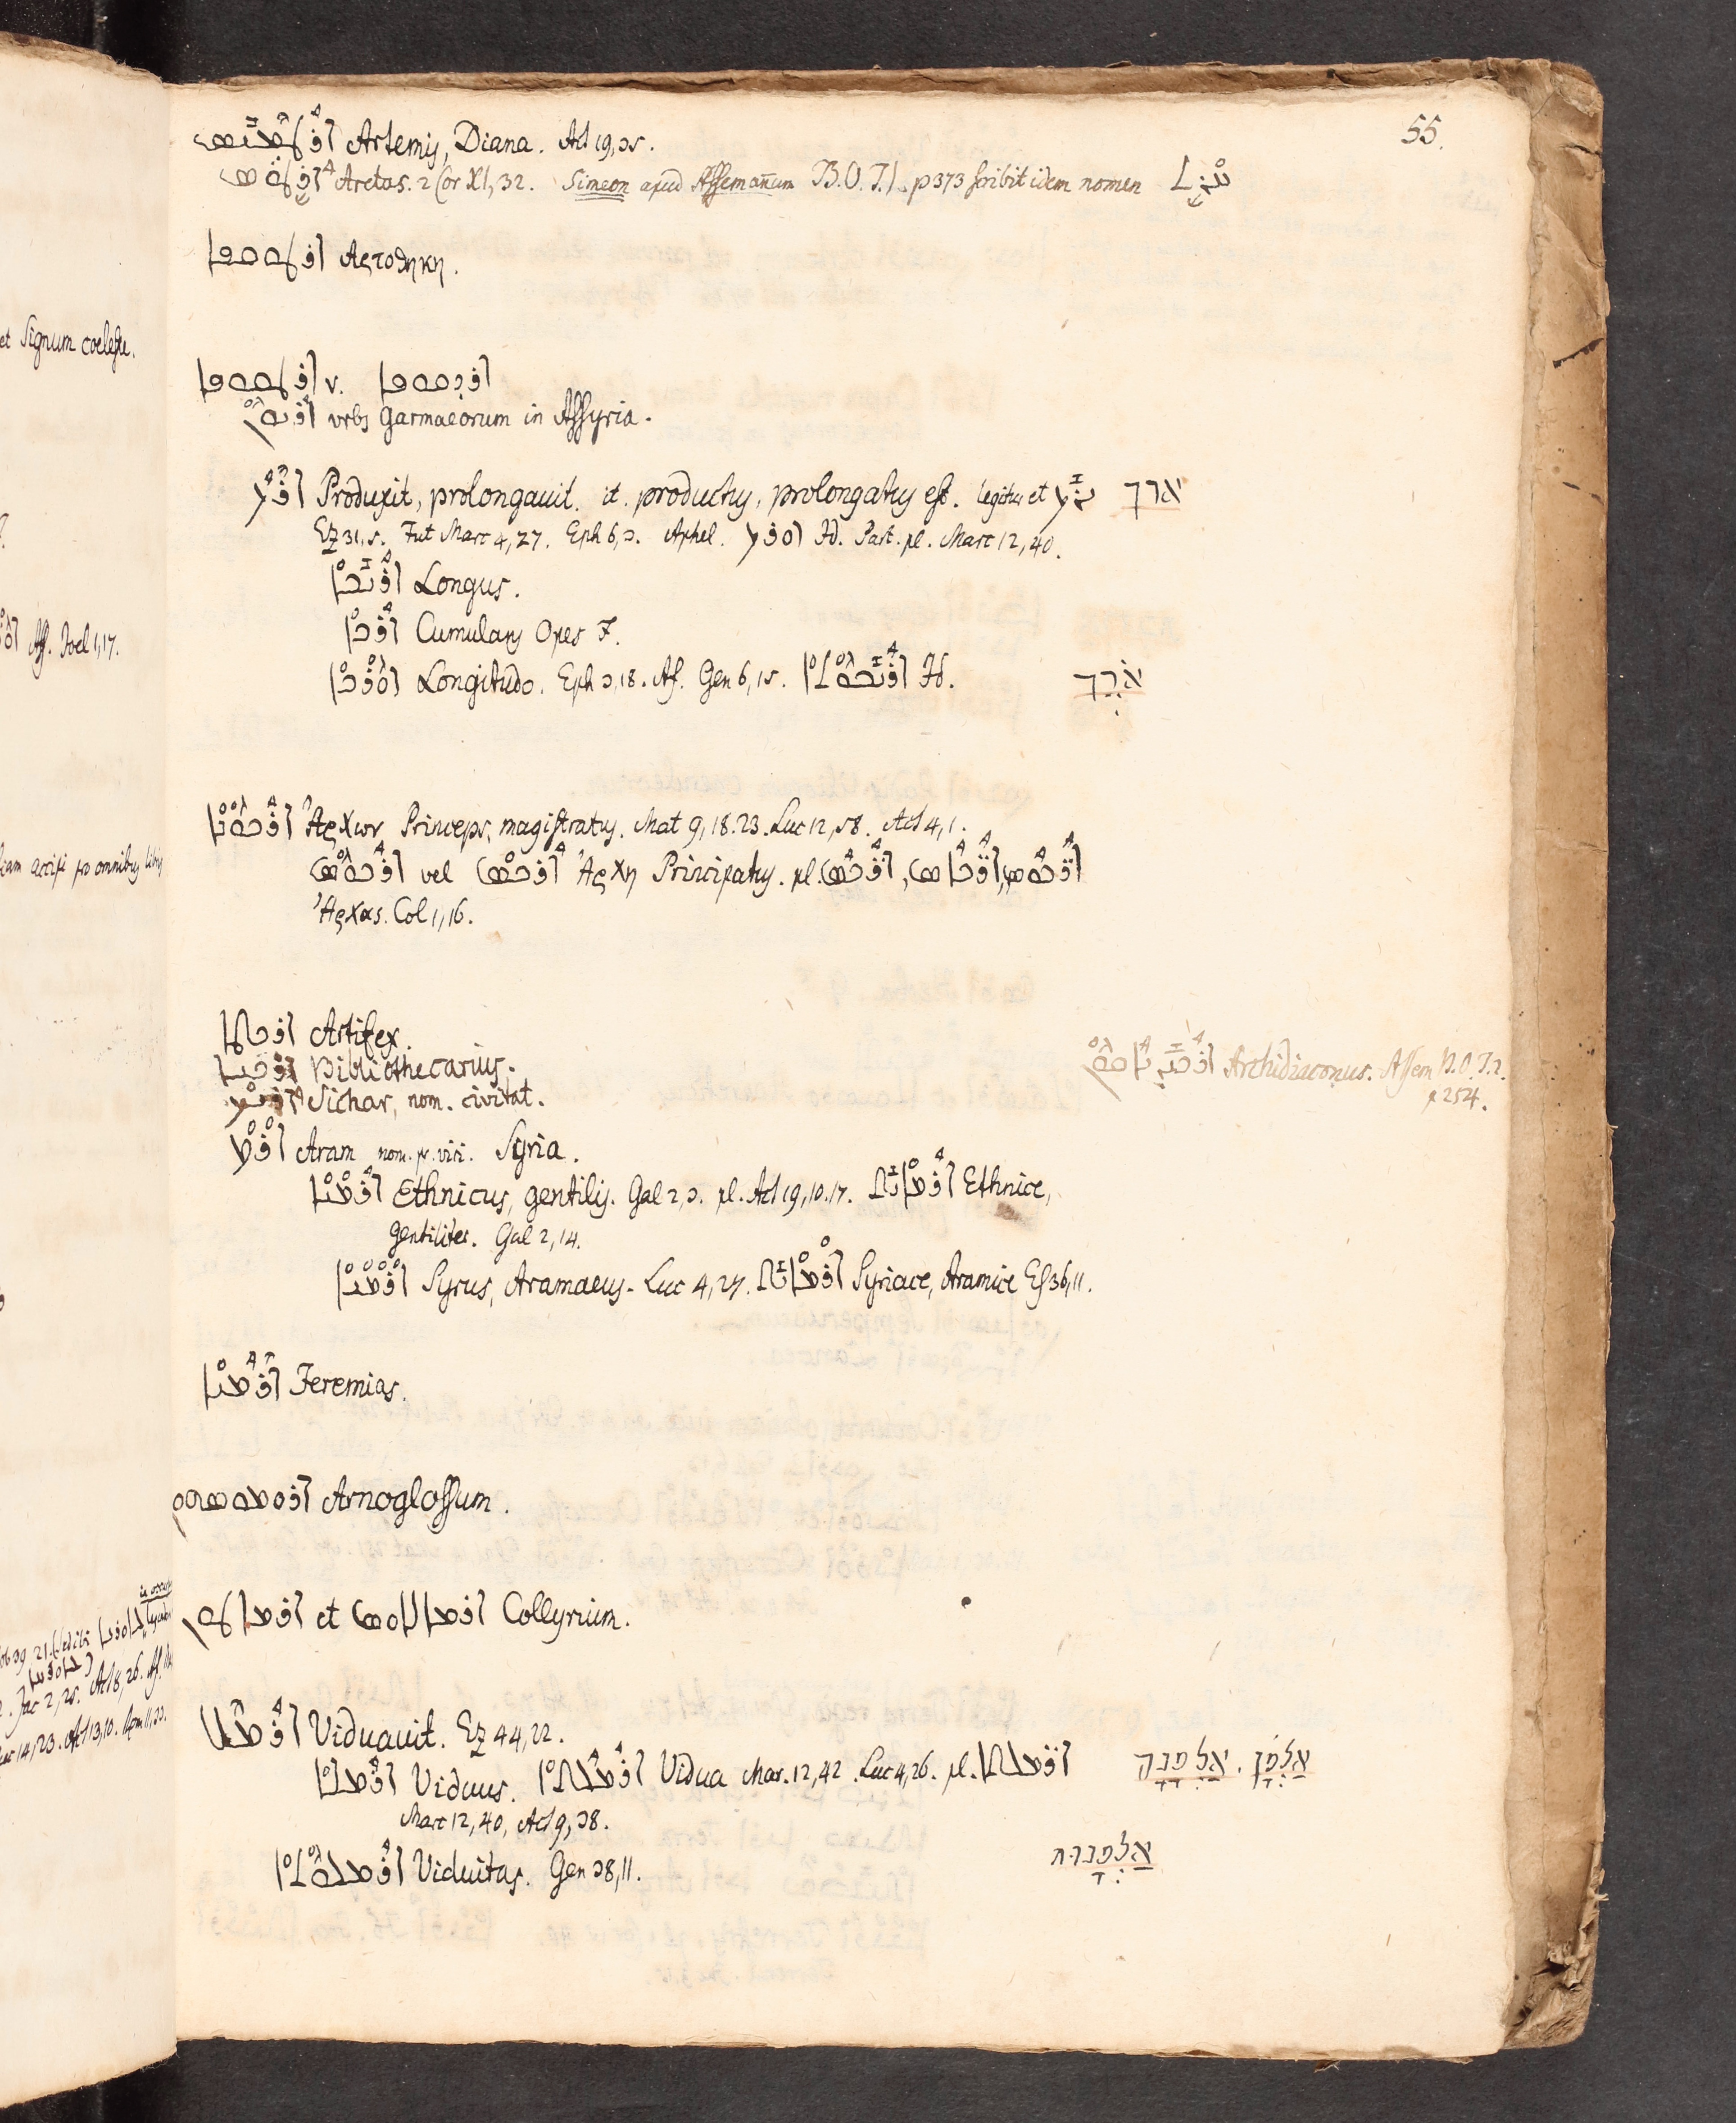 55.
ܐܪܛܡܝܣ Artemis, Diana. Act 19,35.
ܐܪܛܘܣ Aretas. 2 Cor XI,32. Simeon apud Assemanum B.O.T.I. p 373 scribit idem nomen ܚܪܬ
ܐܪܛܘܩܐ Αρτοθηκη.
ܐܪܛܘܩܐ v. ܐܪܕܩܘܩܐ
urbs Garmaeorum in Assyria.
ܐܪܟ Produxit, prolongavit. it. productus, prolongatus est. legitur et ܝܪܟ ארך
Ez 31,5. Fut Marc 4,27. Eph 6,3. Aphel. ܐܘܪܟ Id. Part. pl. Marc 12,40.
ܐܪܝܟܐ Longus.
ܐܪܟܐ Cumulans Opes F.
ܐܘܪܟܐ Longitudo. Eph 3,18. Af. Gen 6,15. ܐܪܝܟܘܬܐ Id. אֹרֶך
ܐܪܟܘܢܐ Ἀρχων Princeps, magistratus. Mat 9,18.23. Luc 12,58. Act 4,1.
ܐܪܟܘܣ vel ܐܪܟܣ Ἀρχη Principatus. pl. ܐܪܟܣ, ܐܪܟܐܣ,
Ἀρχας. Col 1,16.
Artifex.
Bibliothecarius.
Sichar, nom. civitat.
ܐܪܟܝܕܝܐܩܘܢ Archidiaconus. Assem B.O.T.2.
p 254.
ܐܪܡ Aram nom. pr. viri. Syria.
ܐܪܡܝܐ Ethnicus, gentilis. Gal 2,3. pl. Act 19,10.17. ܐܪܡܐܝܬ Ethnice,
gentiliter. Gal 2,14.
ܐܪܡܝܐ Syrus, Aramaeus. Luc 4,27. ܐܪܡܐܝܬ Syriace, Aramice Es 36,11.
ܐܪܡܝܐ Jeremias.
Arnoglossum.
ܐܪܡܐܛܘܢ et Collyrium.
ܐܪܡܠ Viduavit. Ez 44,22.
ܐܪܡܠܐ Viduus. ܐܪܡܠܬܐ Vidua Mar. 12,42. Luc 4,26. pl. ܐܪܡܠܬܐ
Marc 12,40, Act 9,38.
ܐܪܡܠܘܬܐ Viduitas. Gen 38,11.
et Signum coeleste.
Af. Joel 1,17.